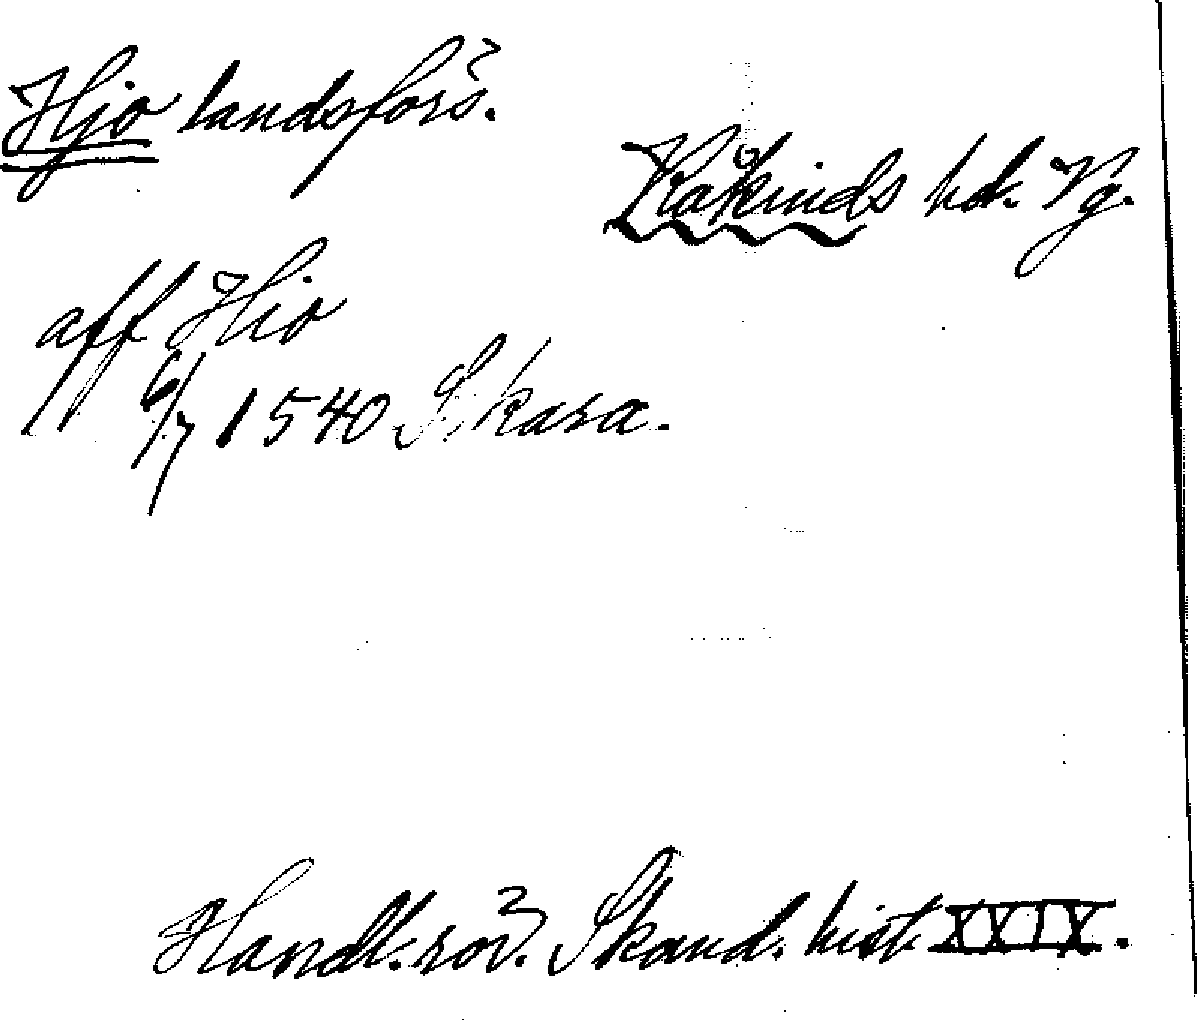 Hjo landsförs.
Kåkinds hd. Vg.
aff Hio
6/7 1540 Skara.
Handl. rör. Skand. hist. XXIX.